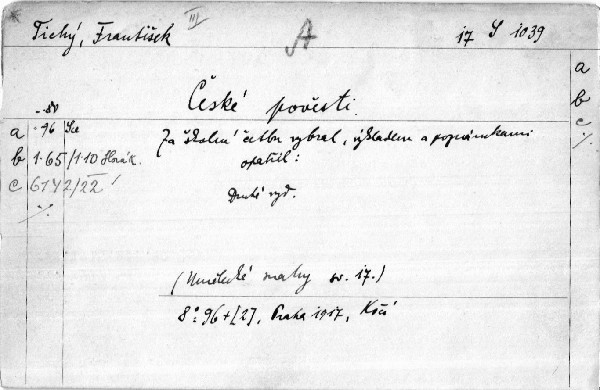 Tichý, František III A 17 S 1039
a
b
c
České pověsti.
Za školní četbu vybral, výkladem a poznámkami
opatřil:
a -.96
b 1.65/1.10 Horák.
c 6142/22
Druhé vyd.
(Umělecké snahy sv. 17.)
8°: 96+[2], Praha 1917, Kočí